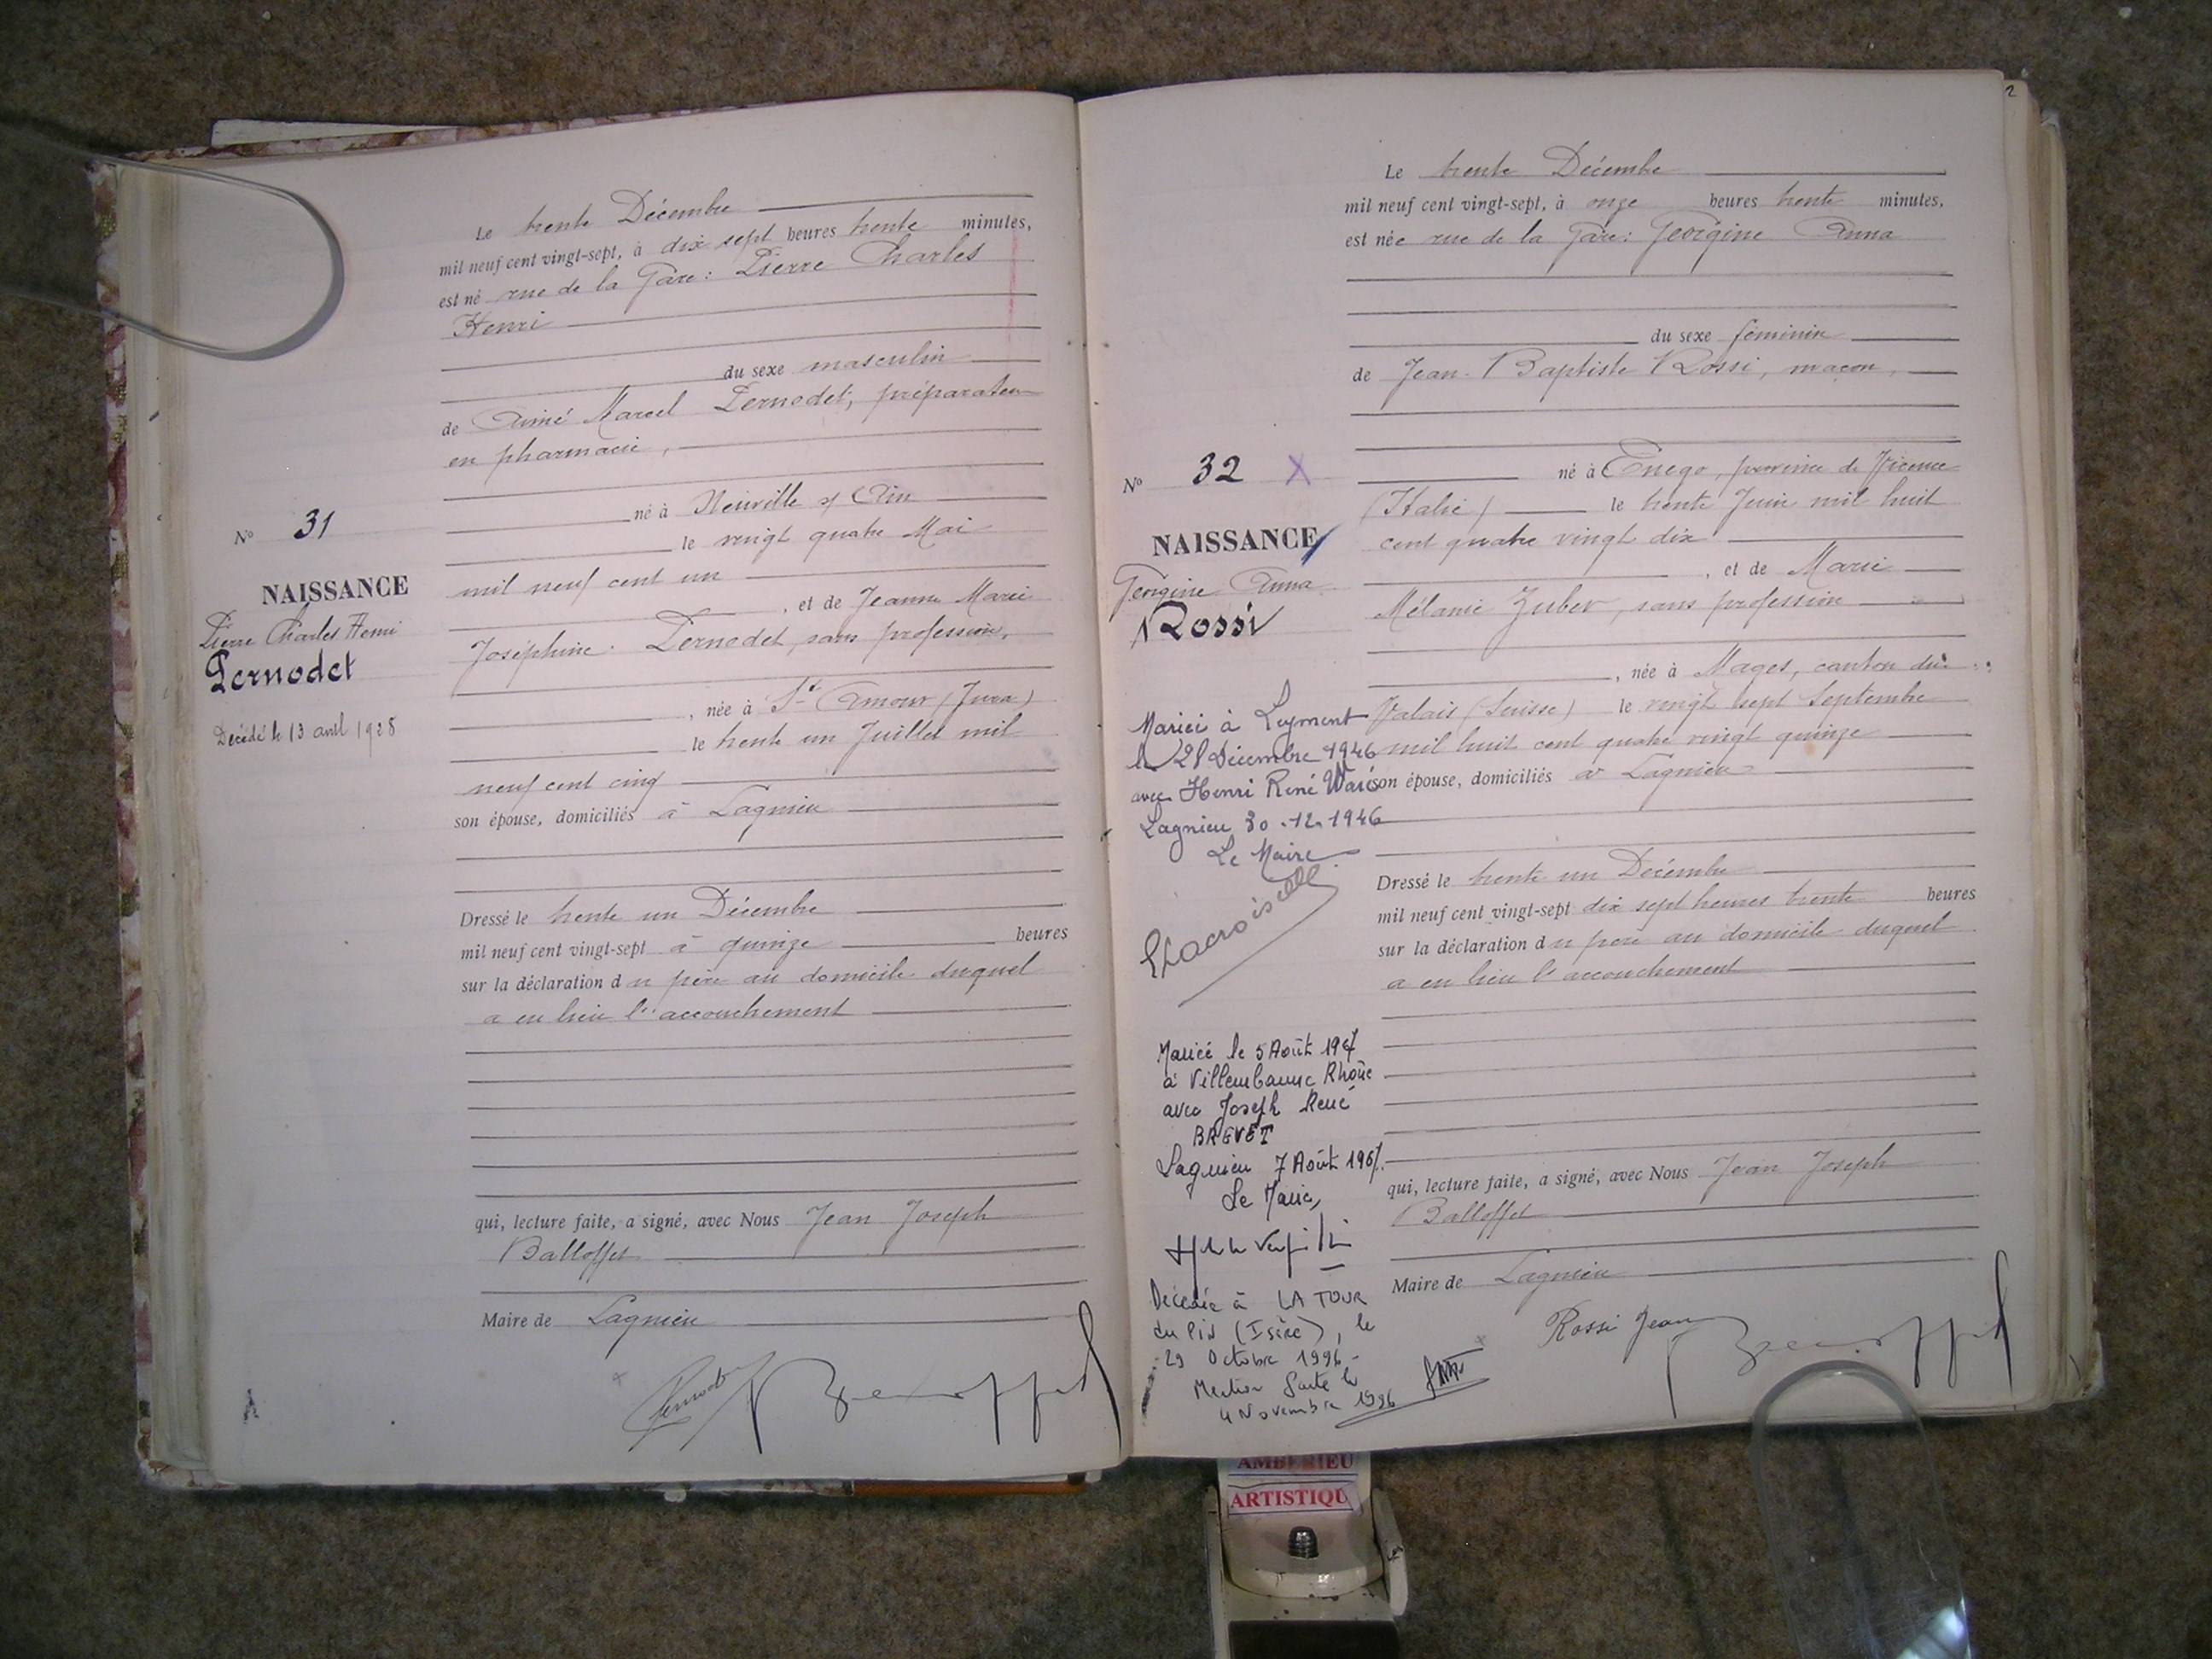 Le trente Décembre
mil neuf cent vingt-sept, à dix sept heures trente minutes,
est né rue de la Gare : Pierre Charles
Henri
du sexe masculin
de Aimé Marcel Pernodet, préparateur
en pharmacie,
né à Neuville s/ Ain
le vingt quatre Mai
mil neuf cent un
, et de Jeanne Marie
Joséphine Pernodet, sans profession,
, née à St Amour (Jura)
le trente un Juillet mil
neuf cent cinq
son épouse, domiciliés à Lagnieu
Dressé le trente un Décembre
mil neuf cent vingt-sept à quinze heures
sur la déclaration du père au domicile duquel
a eu lieu l'accouchement
qui, lecture faite, a signé, avec Nous Jean Joseph
Balloffet
Maire de Lagnieu
No 31
NAISSANCE
Pierre Charles Henri
Pernodet
Décédé le 13 avril 1928
2
Le trente Décembre
mil neuf cent vingt-sept, à onze heures trente minutes,
est née rue de la Gare : Georgine Anna
du sexe féminin
de Jean-Baptiste Rossi, maçon,
né à Enego, province de Vicence
(Italie) le trente Juin mil huit
cent quatre vingt dix
, et de Marie
Mélanie Zuber, sans profession
, née à Mages, canton du
Valais (Suisse) le vingt sept Septembre
mil huit cent quatre vingt quinze
son épouse, domiciliés à Lagnieu
Dressé le trente un Décembre
mil neuf cent vingt-sept dix sept heures trente heures
sur la déclaration du père au domicile duquel
a eu lieu l'accouchement
qui, lecture faite, a signé, avec Nous Jean Joseph
Balloffet
Maire de Lagnieu
Rossi Jean
No 32 X
NAISSANCE
Georgine Anna
Rossi
Mariée à Leyment
le 28 Décembre 1946
avec Henri René
Lagnieu 30.12.1946
Le Maire
Mariée le 5 Août 1967
à Villeurbanne Rhône
avec Joseph René
BREVET
Lagnieu 7 Août 1967.
Le Maire,
Décédée à LA TOUR
du Pin (Isère), le
29 Octobre 1996-
Mention faite le
4 Novembre 1996
AMBERIEU
ARTISTIQU